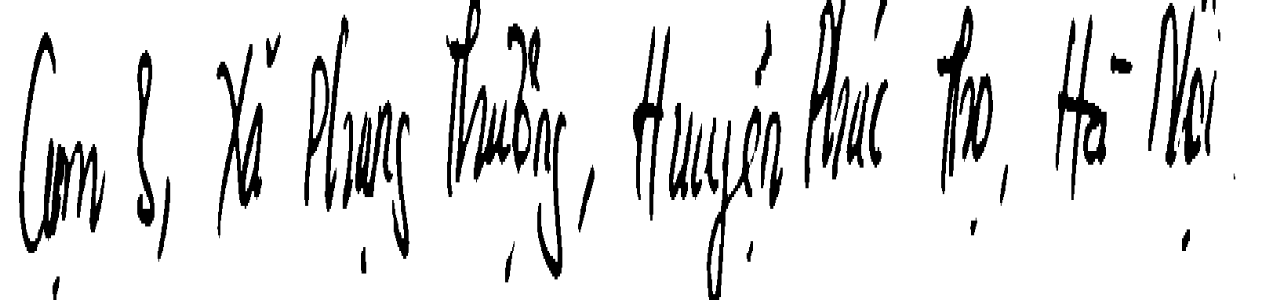 Cụm 8, Xã Phụng Thượng, Huyện Phúc Thọ, Hà Nội